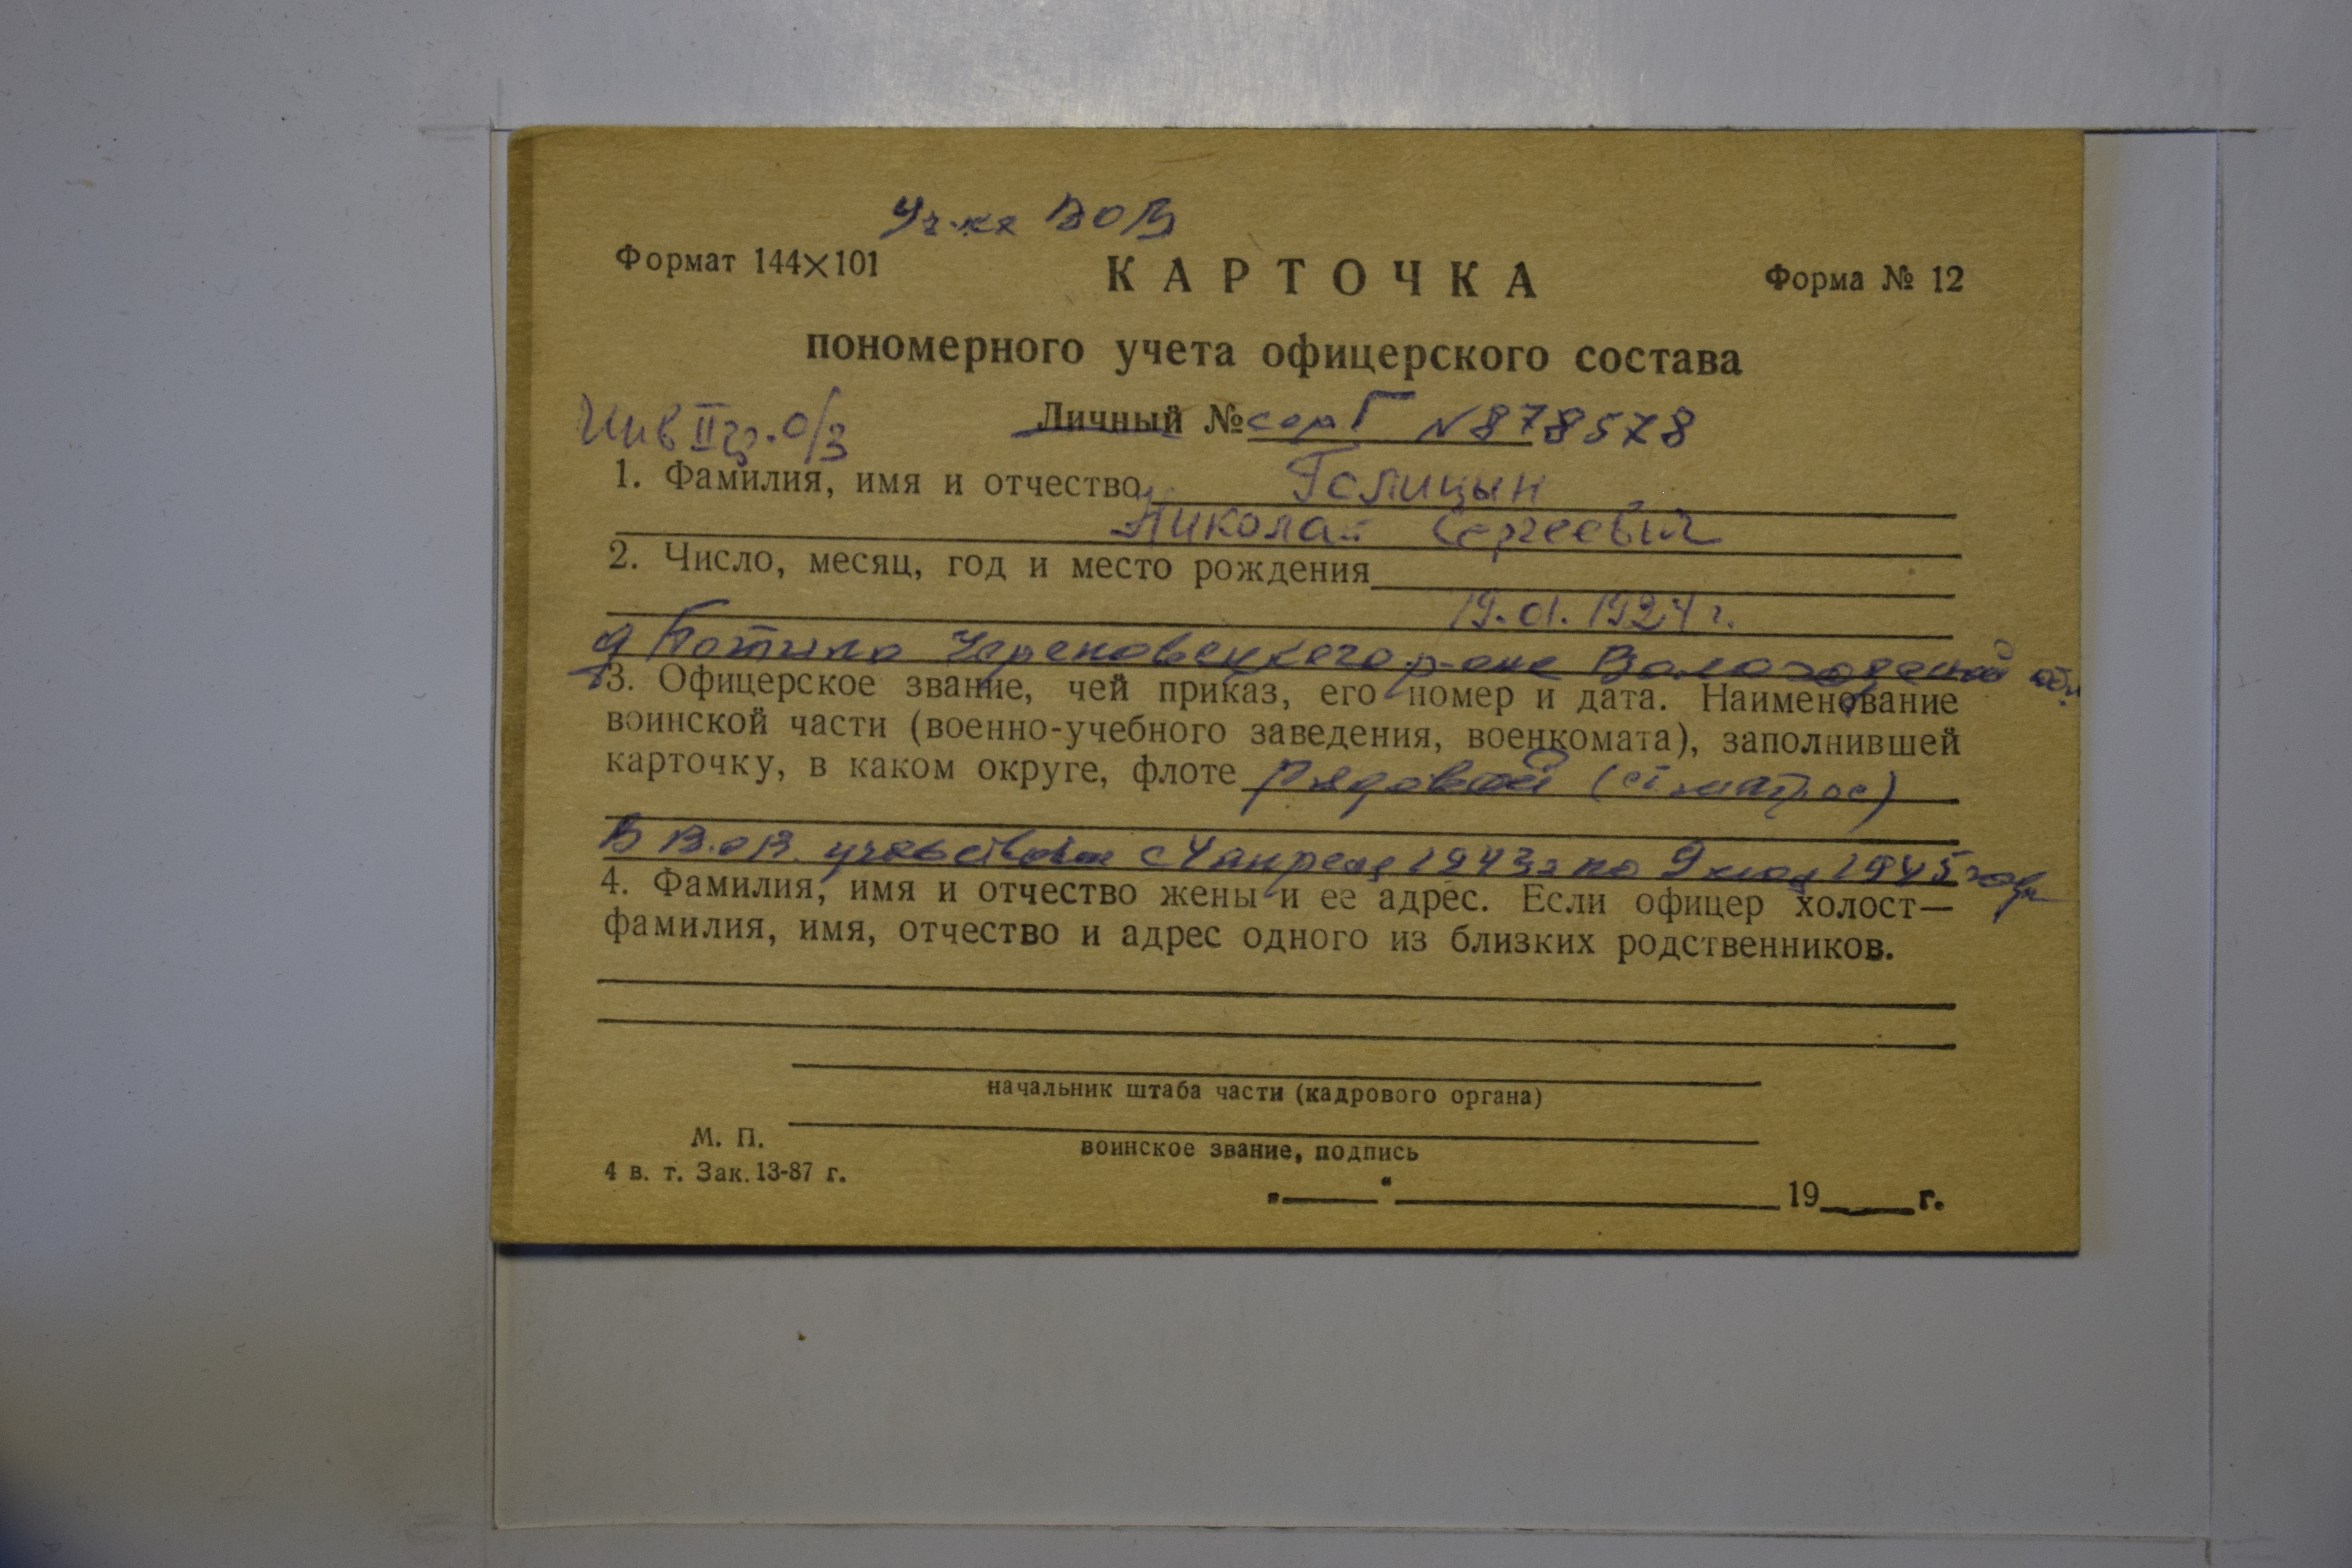 Уч-ка ВОВ
Формат 144×101
КАРТОЧКА
Форма № 12
пономерного учета офицерского состава
Инв II гр. о/з
Личный № серГ №878578
1. Фамилия, имя и отчество Голицын
Николай Сергеевич
2. Число, месяц, год и место рождения
19.01.1924 г.
д Череповецкого р-она Вологодской обл.
3. Офицерское звание, чей приказ, его номер и дата. Наименование
воинской части (военно-учебного заведения, военкомата), заполнившей
карточку, в каком округе, флоте рядовой (ст матрос)
В В.О.В. участвовал с 4 апреля 1943г по 9 мая 1945 года
4. Фамилия, имя и отчество жены и ее адрес. Если офицер холост—
фамилия, имя, отчество и адрес одного из близких родственников.
начальник штаба части (кадрового органа)
М. П.
воинское звание, подпись
4 в. т. Зак. 13-87 г.
„ “ 19 г.